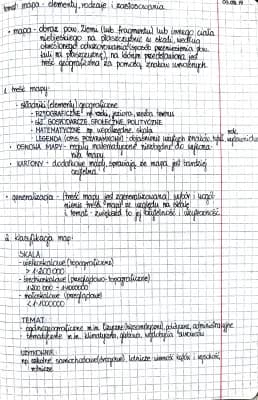 temat: mapa - elementy, rodzaje i zastosowanie. 03.09.19
• mapa - obraz pow. Ziemi (lub fragmentu) lub innego ciała
niebieskiego na płaszczyźnie w skali, według
określonego odwzorowania (sposób przeniesienia pow.
kuli na płaszczyznę), na którym przedstawiona jest
treść geograficzna za pomocą znaków umownych.
1. treść mapy:
• składniki (elementy) geograficzne
• FIZJOGRAFICZNE np. rzeki, jeziora, rzeźba terenu
GOSPODARCZE, SPOŁECZNE, POLITYCZNE
• MATEMATYCZNE np. współrzędne, skala
• LEGENDA (OPIS POZARAMKOWY): objaśnienie użytych znaków, tytuł, wydawnictwo
• OSNOWA MAPY - reguły matematyczne niezbędne do wykona-
nia mapy
• KARTONY - dodatkowe mapy, sprawiają, że mapa jest bardziej
czytelna.
• generalizacja - (treść mapy jest zgeneralizowana) wybór i uogól-
nienie treści mapy ze względu na skalę
i temat - zwiększa to jej czytelność i użyteczność.
2. klasyfikacja map:
SKALA:
- wielkoskalowe (topograficzne)
> 1:200 000
- średnioskalowe (przeglądowo-topograficzne)
1:200 000 - 1:1000000
- małoskalowe (przeglądowe)
< 1:1000000
TEMAT:
- ogólnogeograficzne m.in. fizyczne (hipsometryczne), polityczne, administracyjne
- tematyczne m.in. klimatyczne, glebowe, wydobycia surowców
UŻYTKOWNIK
np. szkolne, samochodowe (drogowe), lotnicze